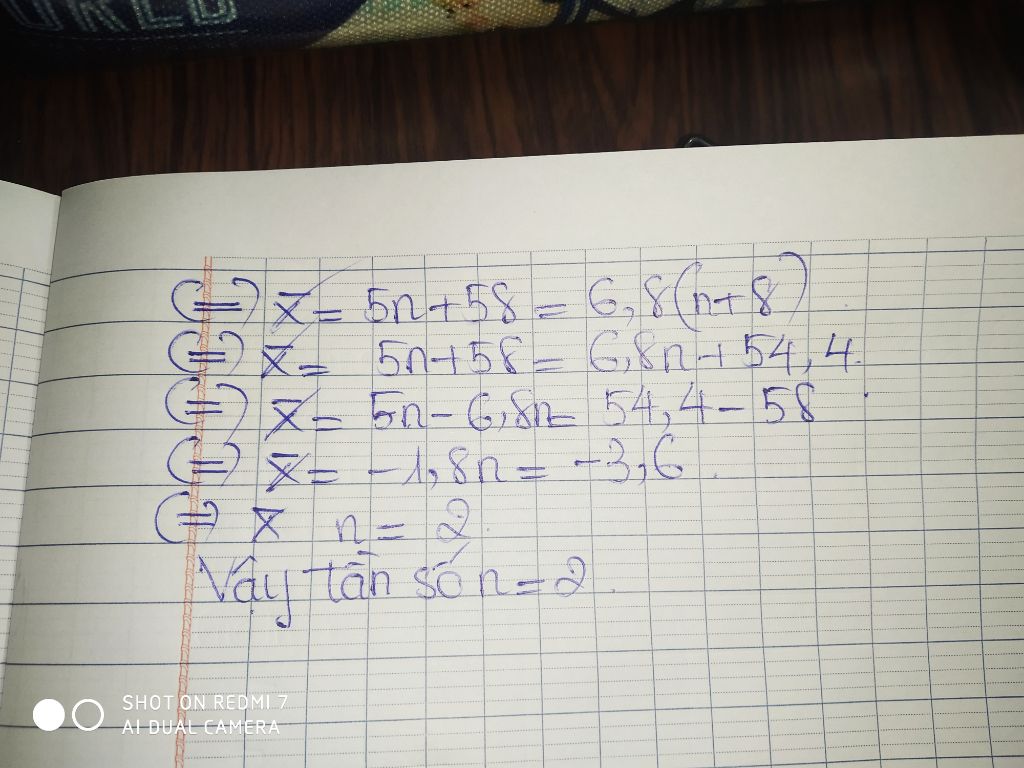 ORLD
⇔ X̄ = 5n + 58 = 6,8(n+8)
⇔ X̄ = 5n + 58 = 6,8n + 54,4.
⇔ X̄ = 5n - 6,8n = 54,4 - 58
⇔ X̄ = -1,8n = -3,6.
⇔ X̄ n = 2.
Vậy tần số n = 2.
SHOT ON REDMI 7
AI DUAL CAMERA